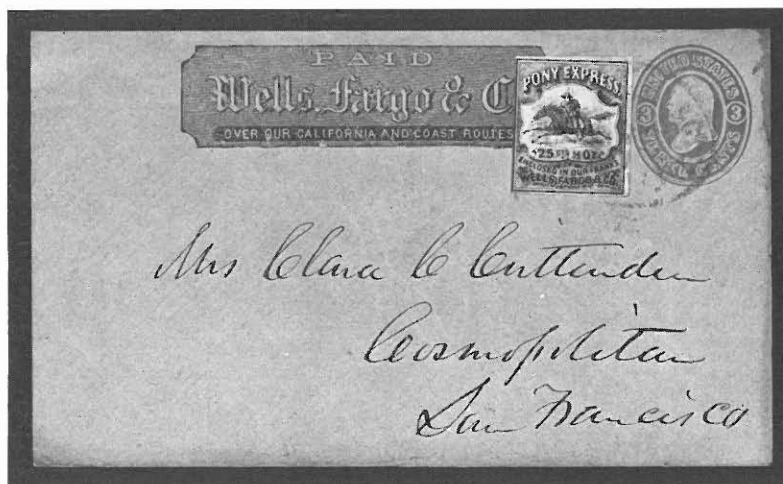 PAID
Wells, Fargo & C
OVER OUR CALIFORNIA AND COAST ROUTES
PONY EXPRESS.
25
OZ.
ENCLOSED IN OUR FRANKS
WELLS, FARGO & CO.
UNITED STATES
3 3
CENTS
Mrs Clara C Cruttenden
Cosmopolitan
San Francisco